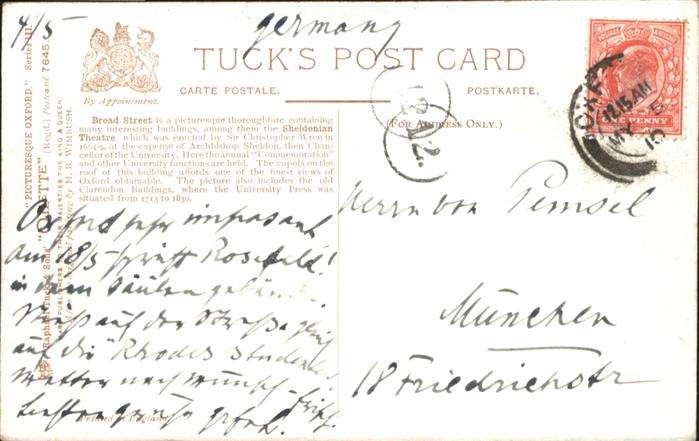 4/5
Germany
TUCK'S POST CARD
CARTE POSTALE.
POSTKARTE.
(FOR ADDRESS ONLY.)
By Appointment.
Broad Street is a picturesque thoroughfare containing
many interesting buildings, among them the Sheldonian
Theatre which was erected by Sir Christopher Wren in
1664-9, at the expense of Archbishop Sheldon, then Chan-
cellor of the University. Here the annual "Commemoration"
and other University functions are held. The cupola on the
roof of this building affords one of the finest views of
Oxford obtainable. The picture also includes the old
Clarendon Buildings, where the University Press was
situated from 1713 to 1830.
"PICTURESQUE OXFORD." Series III.
Raphael Tuck & Sons' "OILETTE" [Regd.] Postcard 7645
Oxford sehr imposant
am 18/5 spricht Rosefeld!
in dem Säulen
auf der Straße
auf die Rhodes Studenten
Wetter nach Wunsch
Printed in England.
ONE PENNY
12.15 AM
MY 5
10
Herrn von Pemsel
München
18 Friedrichstr